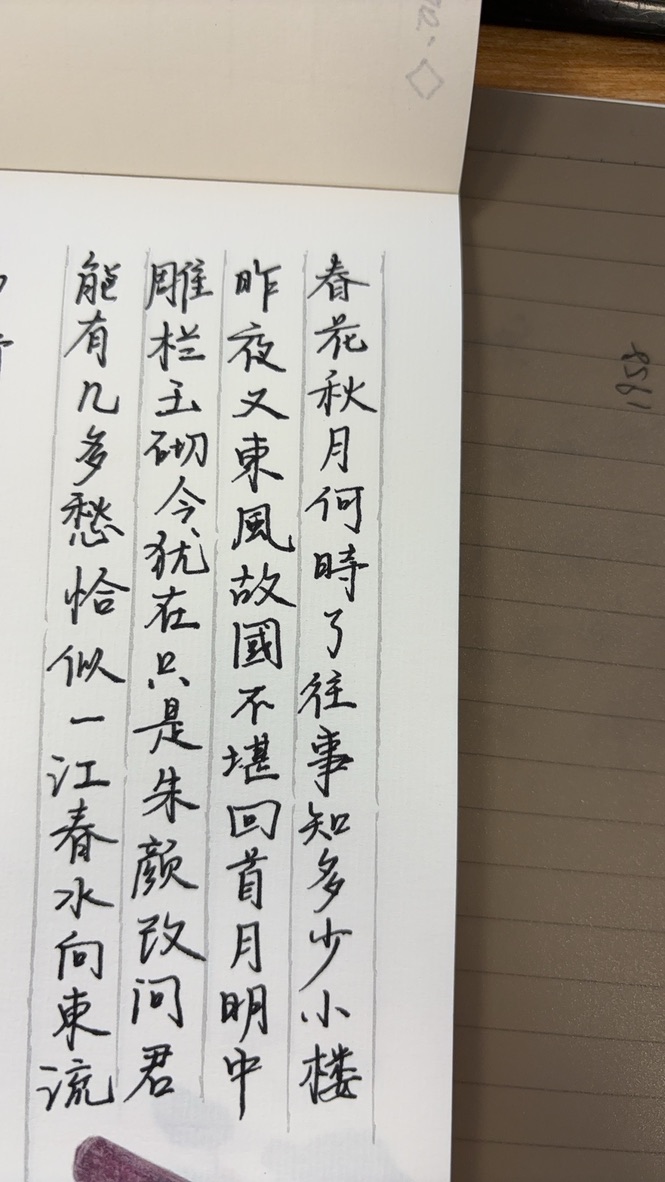 春花秋月何時了往事知多少小楼
昨夜又東風故國不堪回首月明中
雕栏玉砌今犹在只是朱颜改问君
能有几多愁恰似一江春水向東流
1958